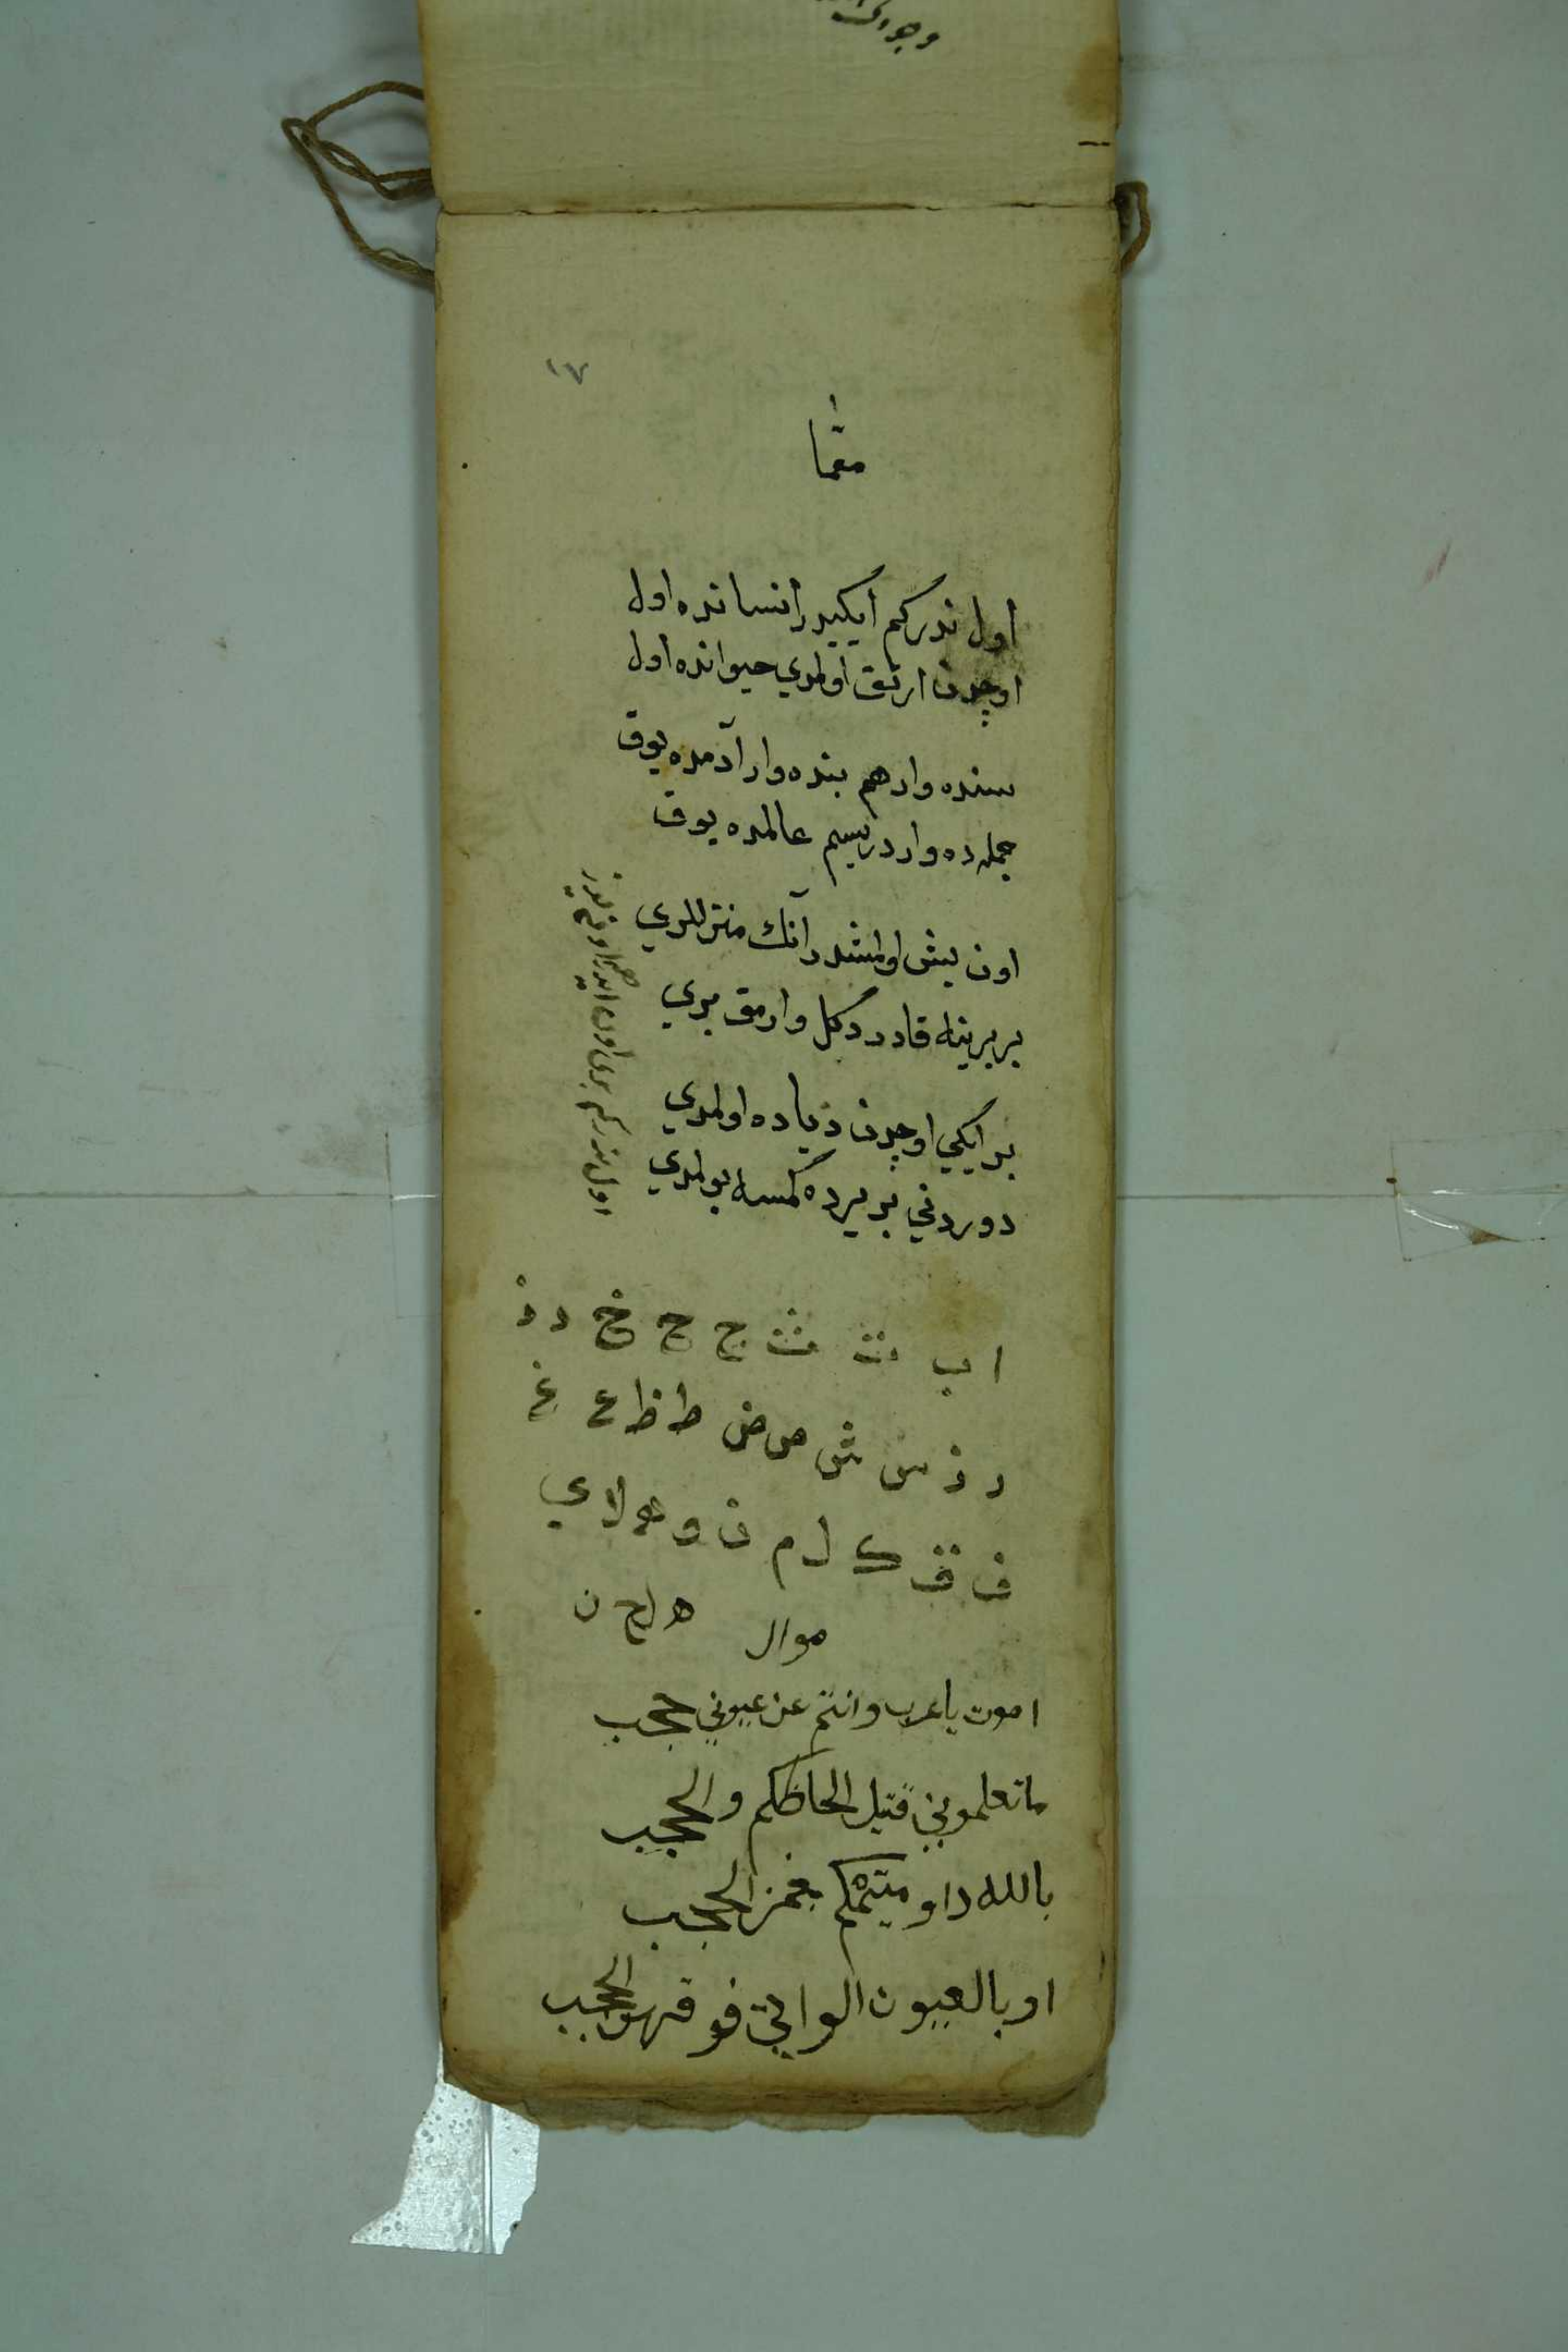 ١٧
معّما
اول ندركم ايكيدر انسانده اول
اوچدن ارتق اولمدي حيوانده اول
سنده وار هم بنده وار آدمده يوق
جمله ده وار دريسم عالمده يوق
اون بش اولمشدر آنك منزللري
بر برينه قادر دكل وارمق بري
بر ايكي اوچدن زياده اولمدي
دوردني بر يرده كمسه بولمدي
اول ندركم بري اون
ا ب ت ث ج ح خ د ذ
ر ز س ش ص ض ط ظ ع غ
ف ق ك ل م ن و ه لا ي
موال
اموت يا عرب وانتم عن عيوني حجب
ما تعلموني قتيل الحاظكم والحجب
بالله داو ميتمكم بغمز الحجب
او بالعيون الواتي فوقهو الحجب